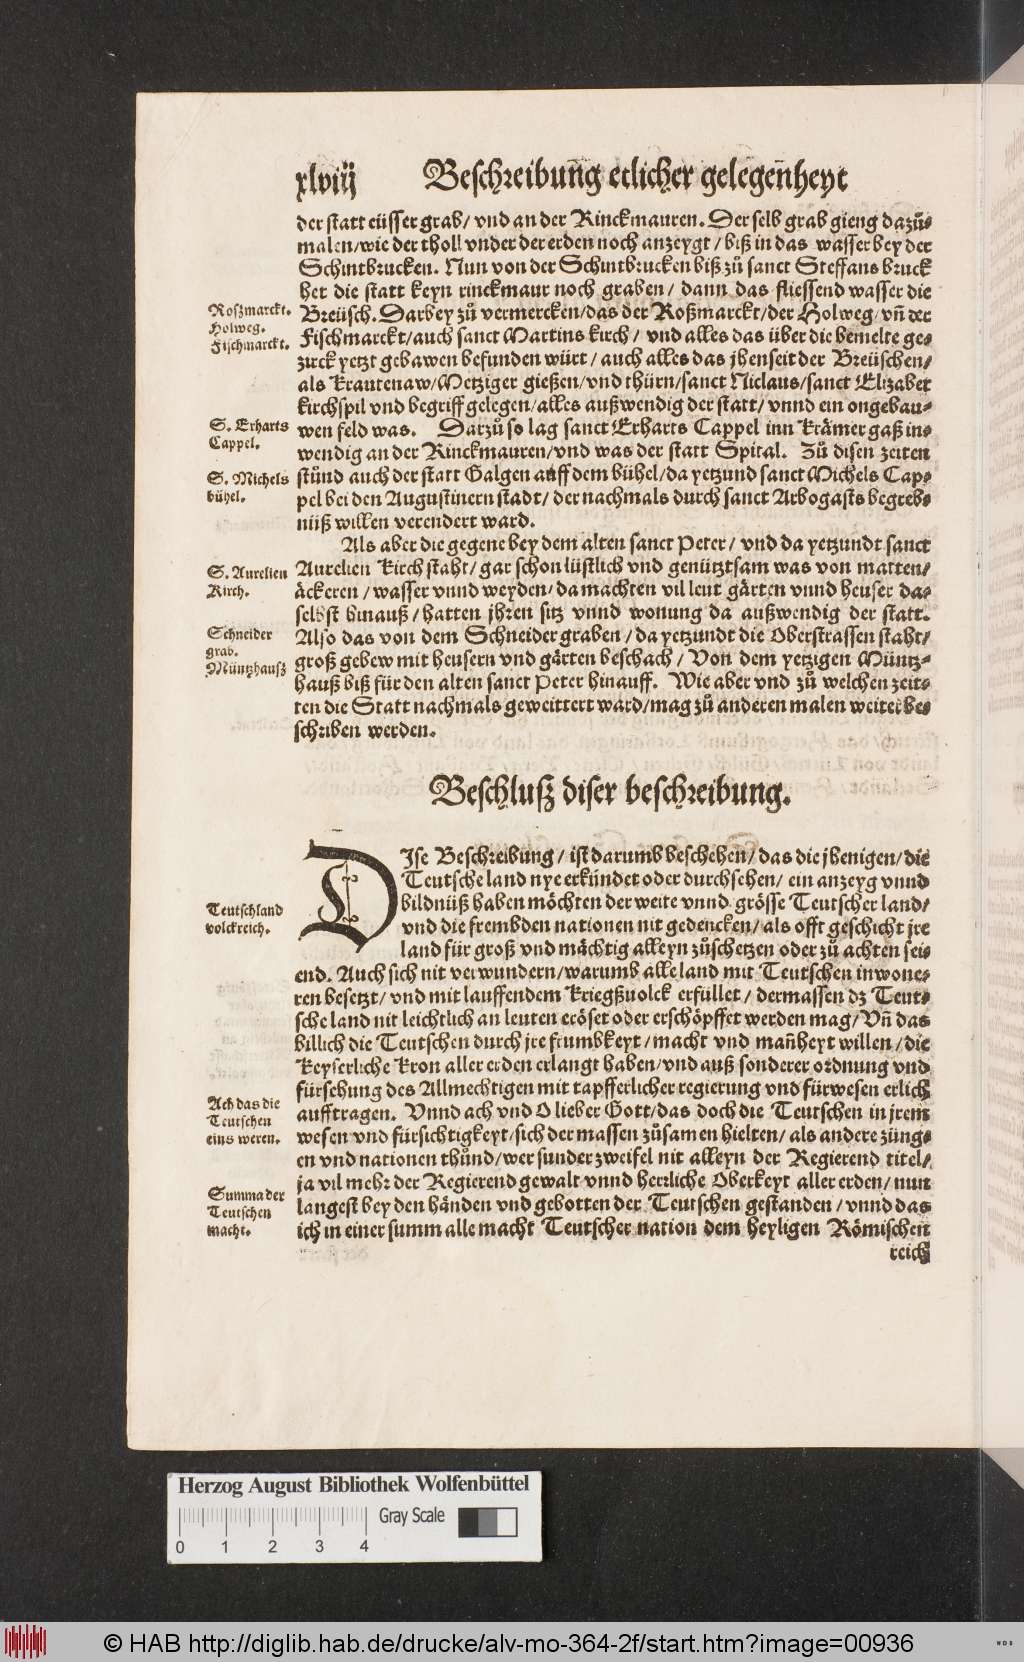 xlviij Beschreibung̃ etlicher gelegen̄heyt
der statt eüsser grab/ vnd an der Rinckmauren. Der selb grab gieng dazů⸗
malen/wie der tholl vnder der erden noch anzeygt/ biß in das wasser bey der
Schintbrucken. Nun von der Schintbrucken biß zů sanct Steffans bruck
het die statt keyn rinckmaur noch graben/ dann das fliessend wasser die
Roßmarckt.
Holweg.
Fischmarckt.
Breüsch. Darbey zů vermercken/das der Roßmarckt/der Holweg/ vn̄ der
Fischmarckt/auch sanct Martins kirch/ vnd alles das über die bemelte ge⸗
zirck yetzt gebawen befunden würt/ auch alles das jhenseit der Breüschen/
als Krautenaw/Metziger gießen/vnd thürn/sanct Niclaus/sanct Elizabet
kirchspil vnd begriff gelegen/alles außwendig der statt/ vnnd ein ongebau⸗
S. Erharts
Cappel.
wen feld was. Darzů so lag sanct Erharts Cappel inn Krämer gaß in⸗
wendig an der Rinckmauren/vnd was der statt Spital. Zů disen zeiten
S. Michels
bühel.
stůnd auch der statt Galgen auff dem bühel/da yetzund sanct Michels Cap⸗
pel bei den Augustinern stadt/ der nachmals durch sanct Arbogasts begreb⸗
nüß willen verendert ward.
Als aber die gegene bey dem alten sanct Peter/ vnd da yetzundt sanct
S. Aurelien
Kirch.
Aurelien Kirch staht/ gar schon lüstlich vnd genütztsam was von matten/
äckeren/ wasser vnnd weyden/ da machten vil leut gärten vnnd heuser da⸗
selbst hinauß/ hatten jhren sitz vnnd wonung da außwendig der statt.
Schneider
grab.
Müntzhauß
Also das von dem Schneider graben/ da yetzundt die Oberstrassen staht/
groß gebew mit heusern vnd gärten beschach/ Von dem yetzigen Müntz⸗
hauß biß für den alten sanct Peter hinauff. Wie aber vnd zů welchen zeit⸗
ten die Statt nachmals geweittert ward/mag zů anderen malen weiter be⸗
schriben werden.
Beschluß diser beschreibung.
DIse Beschreibung/ ist darumb beschehen/ das die jhenigen/ die
Teutsche land nye erkündet oder durchsehen/ ein anzeyg vnnd
Teutschland
volckreich.
bildnüß haben möchten der weite vnnd grösse Teutscher land/
vnd die frembden nationen nit gedencken/ als offt geschicht jre
land für groß vnd mächtig alleyn zůschetzen oder zů achten sei⸗
end. Auch sich nit verwundern/warumb alle land mit Teutschen inwone⸗
ren besetzt/ vnd mit lauffendem Kriegßuolck erfüllet/ dermassen dz Teut⸗
sche land nit leichtlich an leuten eröset oder erschöpffet werden mag/ Vn̄ das
billich die Teutschen durch jre frumbkeyt/ macht vnd man̄heyt willen/ die
Keyserliche Kron aller erden erlangt haben/vnd auß sonderer ordnung vnd
fürsehung des Allmechtigen mit tapfferlicher regierung vnd fürwesen erlich
Ach das die
Teutschen
eins weren.
aufftragen. Vnnd ach vnd O lieber Gott/das doch die Teutschen in jrem
wesen vnd fürsichtigkeyt/sich der massen zůsamen hielten/ als andere züng⸗
en vnd nationen thůnd/wer sunder zweifel nit alleyn der Regierend titel/
ja vil mehr der Regierend gewalt vnnd herrliche Oberkeyt aller erden/ nun
Summa der
Teutschen
macht.
langest bey den händen vnd gebotten der Teutschen gestanden/ vnnd das
ich in einer summ alle macht Teutscher nation dem heyligen Römischen
reich
Herzog August Bibliothek Wolfenbüttel
Gray Scale
0 1 2 3 4
© HAB http://diglib.hab.de/drucke/alv-mo-364-2f/start.htm?image=00936